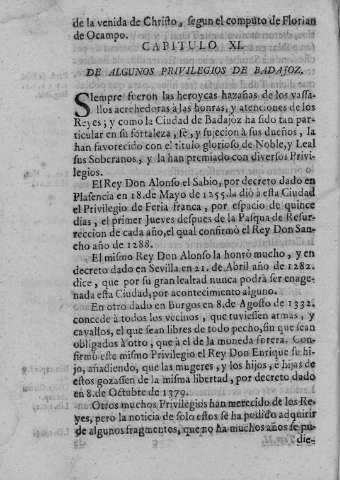 de la venida de Christo, segun el computo de Florian
de Ocampo.
CAPITULO XI.
DE ALGUNOS PRIVILEGIOS DE BADAJOZ.
SIempre fueron las heroycas hazañas de los vassa-
llos acrehedoras à las honras, y atenciones de los
Reyes; y como la Ciudad de Badajoz ha sido tan par-
ticular en su fortaleza, fè, y sujecion à sus dueños, la
han favorecido con el titulo glorioso de Noble, y Leal
sus Soberanos, y la han premiado con diversos Privi-
legios.
El Rey Don Alonso el Sabio, por decreto dado en
Plasencia en 18. de Mayo de 1255. da diò à esta Ciudad
el Privilegio de Feria franca, por espacio de quince
dias, el primer Jueves despues de la Pasqua de Resur-
reccion de cada año, el qual confirmò el Rey Don San-
cho año de 1288.
El mismo Rey Don Alonso la honrò mucho, y en
decreto dado en Sevilla en 21. de Abril año de 1282.
dice, que por su gran lealtad nunca podrà ser enage-
nada esta Ciudad, por acontecimento alguno.
En otro dado en Burgos en 8. de Agosto de 1332.
concede à todos los vecinos, que tuviessen armas, y
cavallos, el que sean libres de todo pecho, sin que sean
obligados à otro, que à el de la moneda forera. Con-
firmò este mismo Privilegio el Rey Don Enrique su hi-
jo, añadiendo, que las mugeres, y los hijos, è hijas de
estos gozassen de la misma libertad, por decreto dado
en 8. de Octubre de 1379.
Otros muchos Privilegios han merecido de los Re-
yes, pero la noticia de solo estos se ha podido adquirir
de algunos fragmentos, que no ha muchos años se pu-
die-